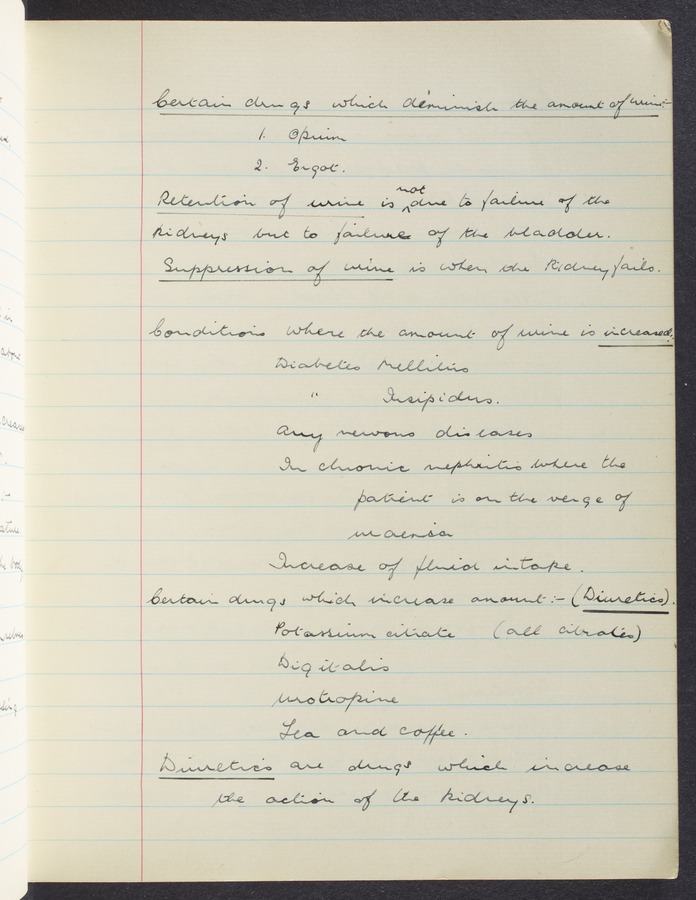 Certain drugs which diminish the amount of urine:-
1. Opium
2. Ergot.
Retention of urine is not due to failure of the
kidneys but to failure of the bladder.
Suppression of urine is when the kidney fails.
Conditions where the amount of urine is increased:
Diabetes Mellitus
" Insipidus.
Any nervous diseases
In chronic nephritis where the
patient is on the verge of
uraemia
Increase of fluid intake.
Certain drugs which increase amount:- (Diuretics).
Potassium citrate (all citrates)
Digitalis
Urotropine
Tea and coffee.
Diuretics are drugs which increase
the action of the kidneys.